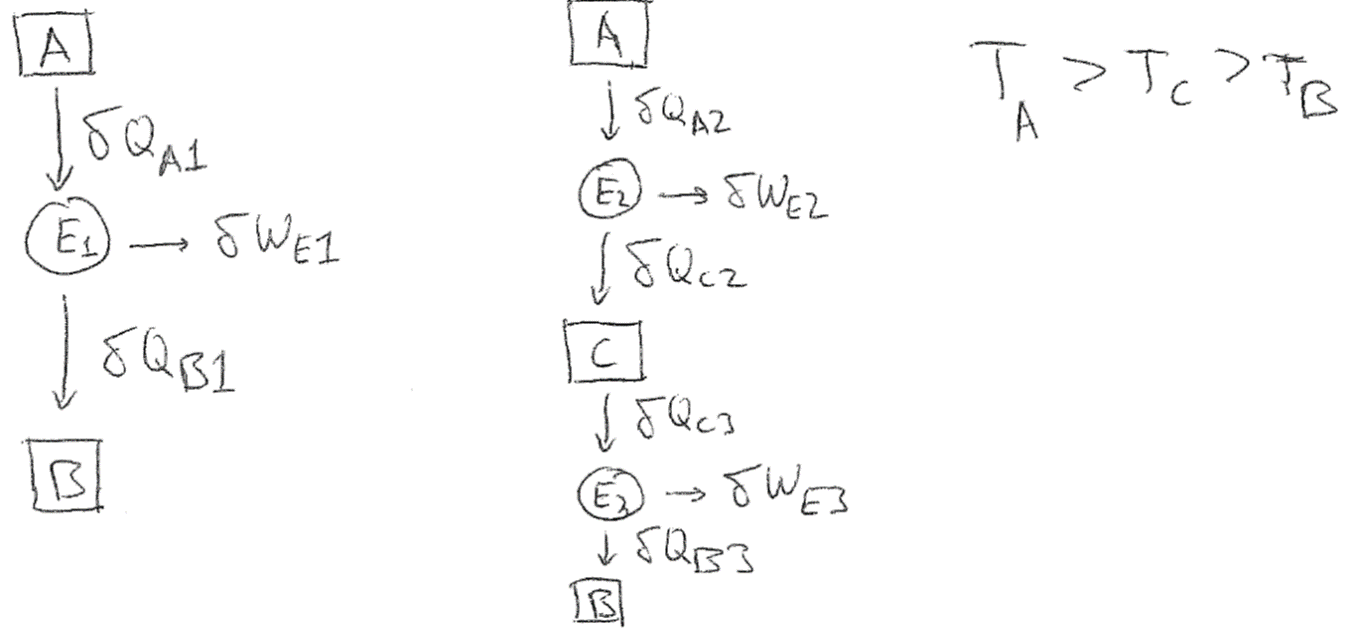 A
δQ_A1
E_1 → δW_E1
δQ_B1
B
A
δQ_A2
E_2 → δW_E2
δQ_C2
C
δQ_C3
E_3 → δW_E3
δQ_B3
B
T_A > T_C > T_B